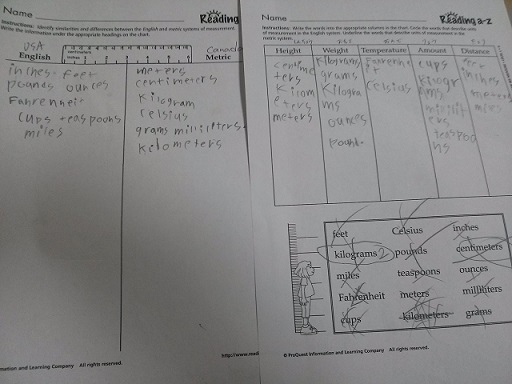 Name
Reading
Instructions: Identify similarities and differences between the English and metric systems of measurement.
Write the information under the appropriate headings on the chart.
USA
Canada
English
Metric
inches feet
pounds ounces
Fahrenheit
cups teaspoons
miles
meters
centimeters
Kilogram
celsius
grams milliliters
kelometers
Information and Learning Company All rights reserved.
http://www
Name
Reading a-z
Instructions: Write the words into the appropriate columns in the chart. Circle the words that describe
units of measurement in the English system. Underline the words that describe units of measurement in the
metric system.
Height Weight Temperature Amount Distance
centime
ters
Kilom
eters
meters
Kilograms
grams
Kilogra
ms
ounces
pound
Fahrenhe
it
celsius
cups
milli
ers
teaspoo
ns
inches
meters
miles
feet Celsius inches
kilograms 2 pounds centimeters
miles teaspoons ounces
Fahrenheit meters milliliters
cups kilometers grams
© ProQuest Information and Learning Company All rights reserved.